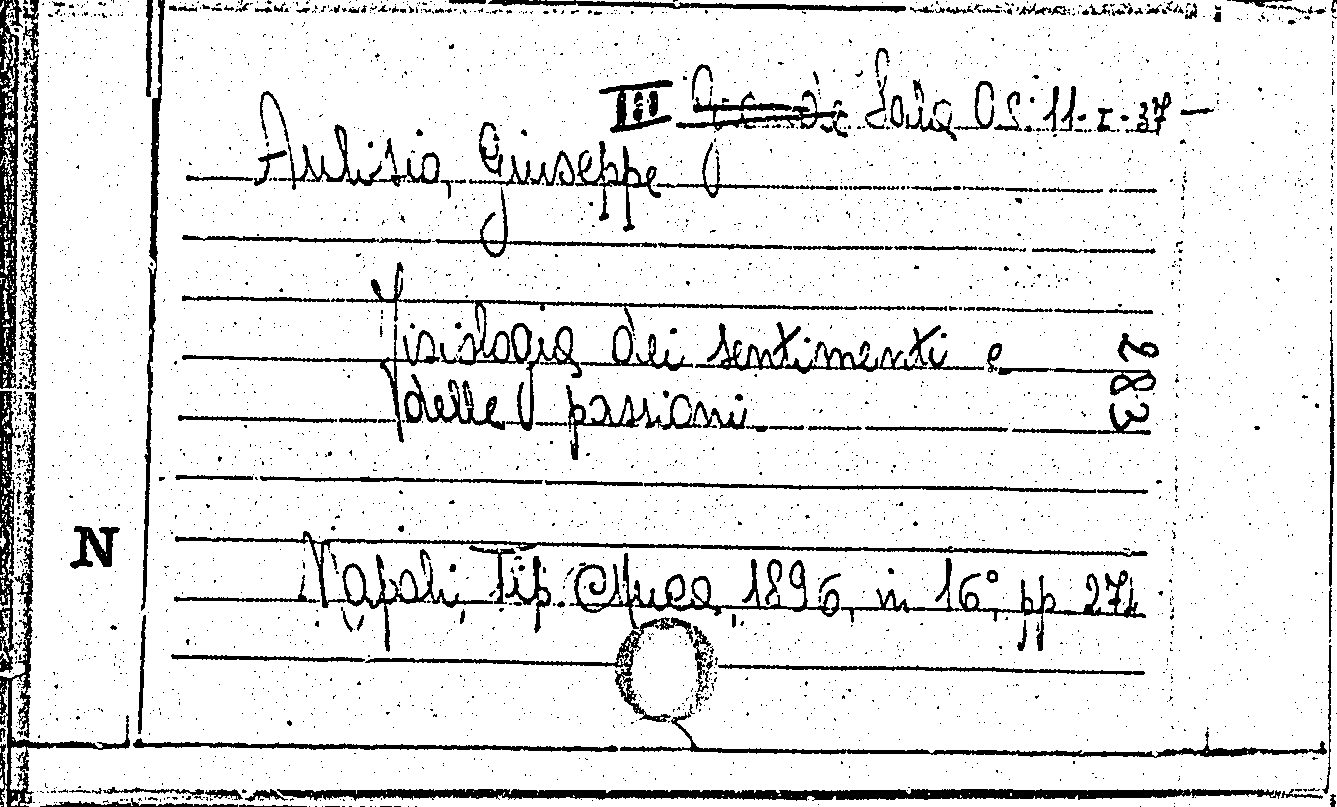 III Grande Sala Os. 11-I-37-
Aulisio, Giuseppe
Fisiologia dei sentimenti e
delle passioni.
283
N
Napoli, Tip. 1896, in 16°, pp. 271